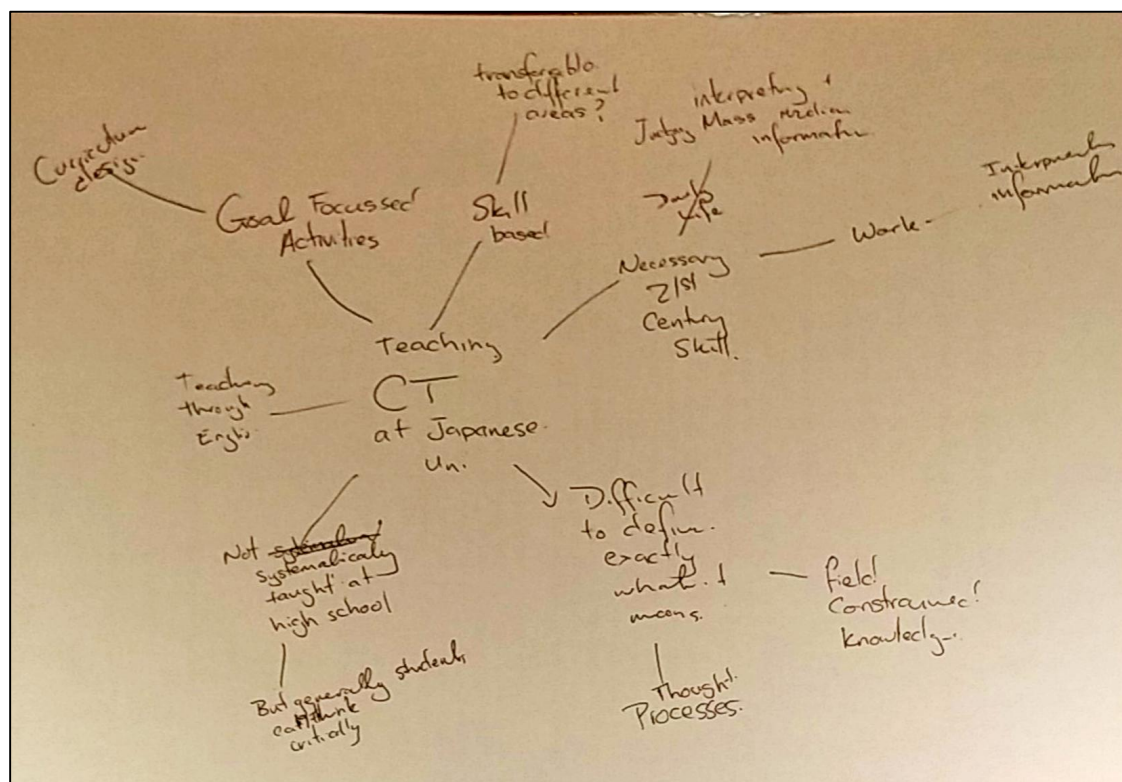 Curriculum
design.
Goal Focussed
Activities
transferable
to different
areas?
Skill
based
interpreting +
Judging Mass media
information.
Daily
life
Necessary
21st
Century
Skill.
Work
information
Teaching
CT
at Japanese.
Un.
Teaching
through
Not
systematically
taught at
high school
But generally students
can think
critically
Difficult
to define.
exactly
what it
means.
field
Constrained
knowledge.
Thought
Processes.